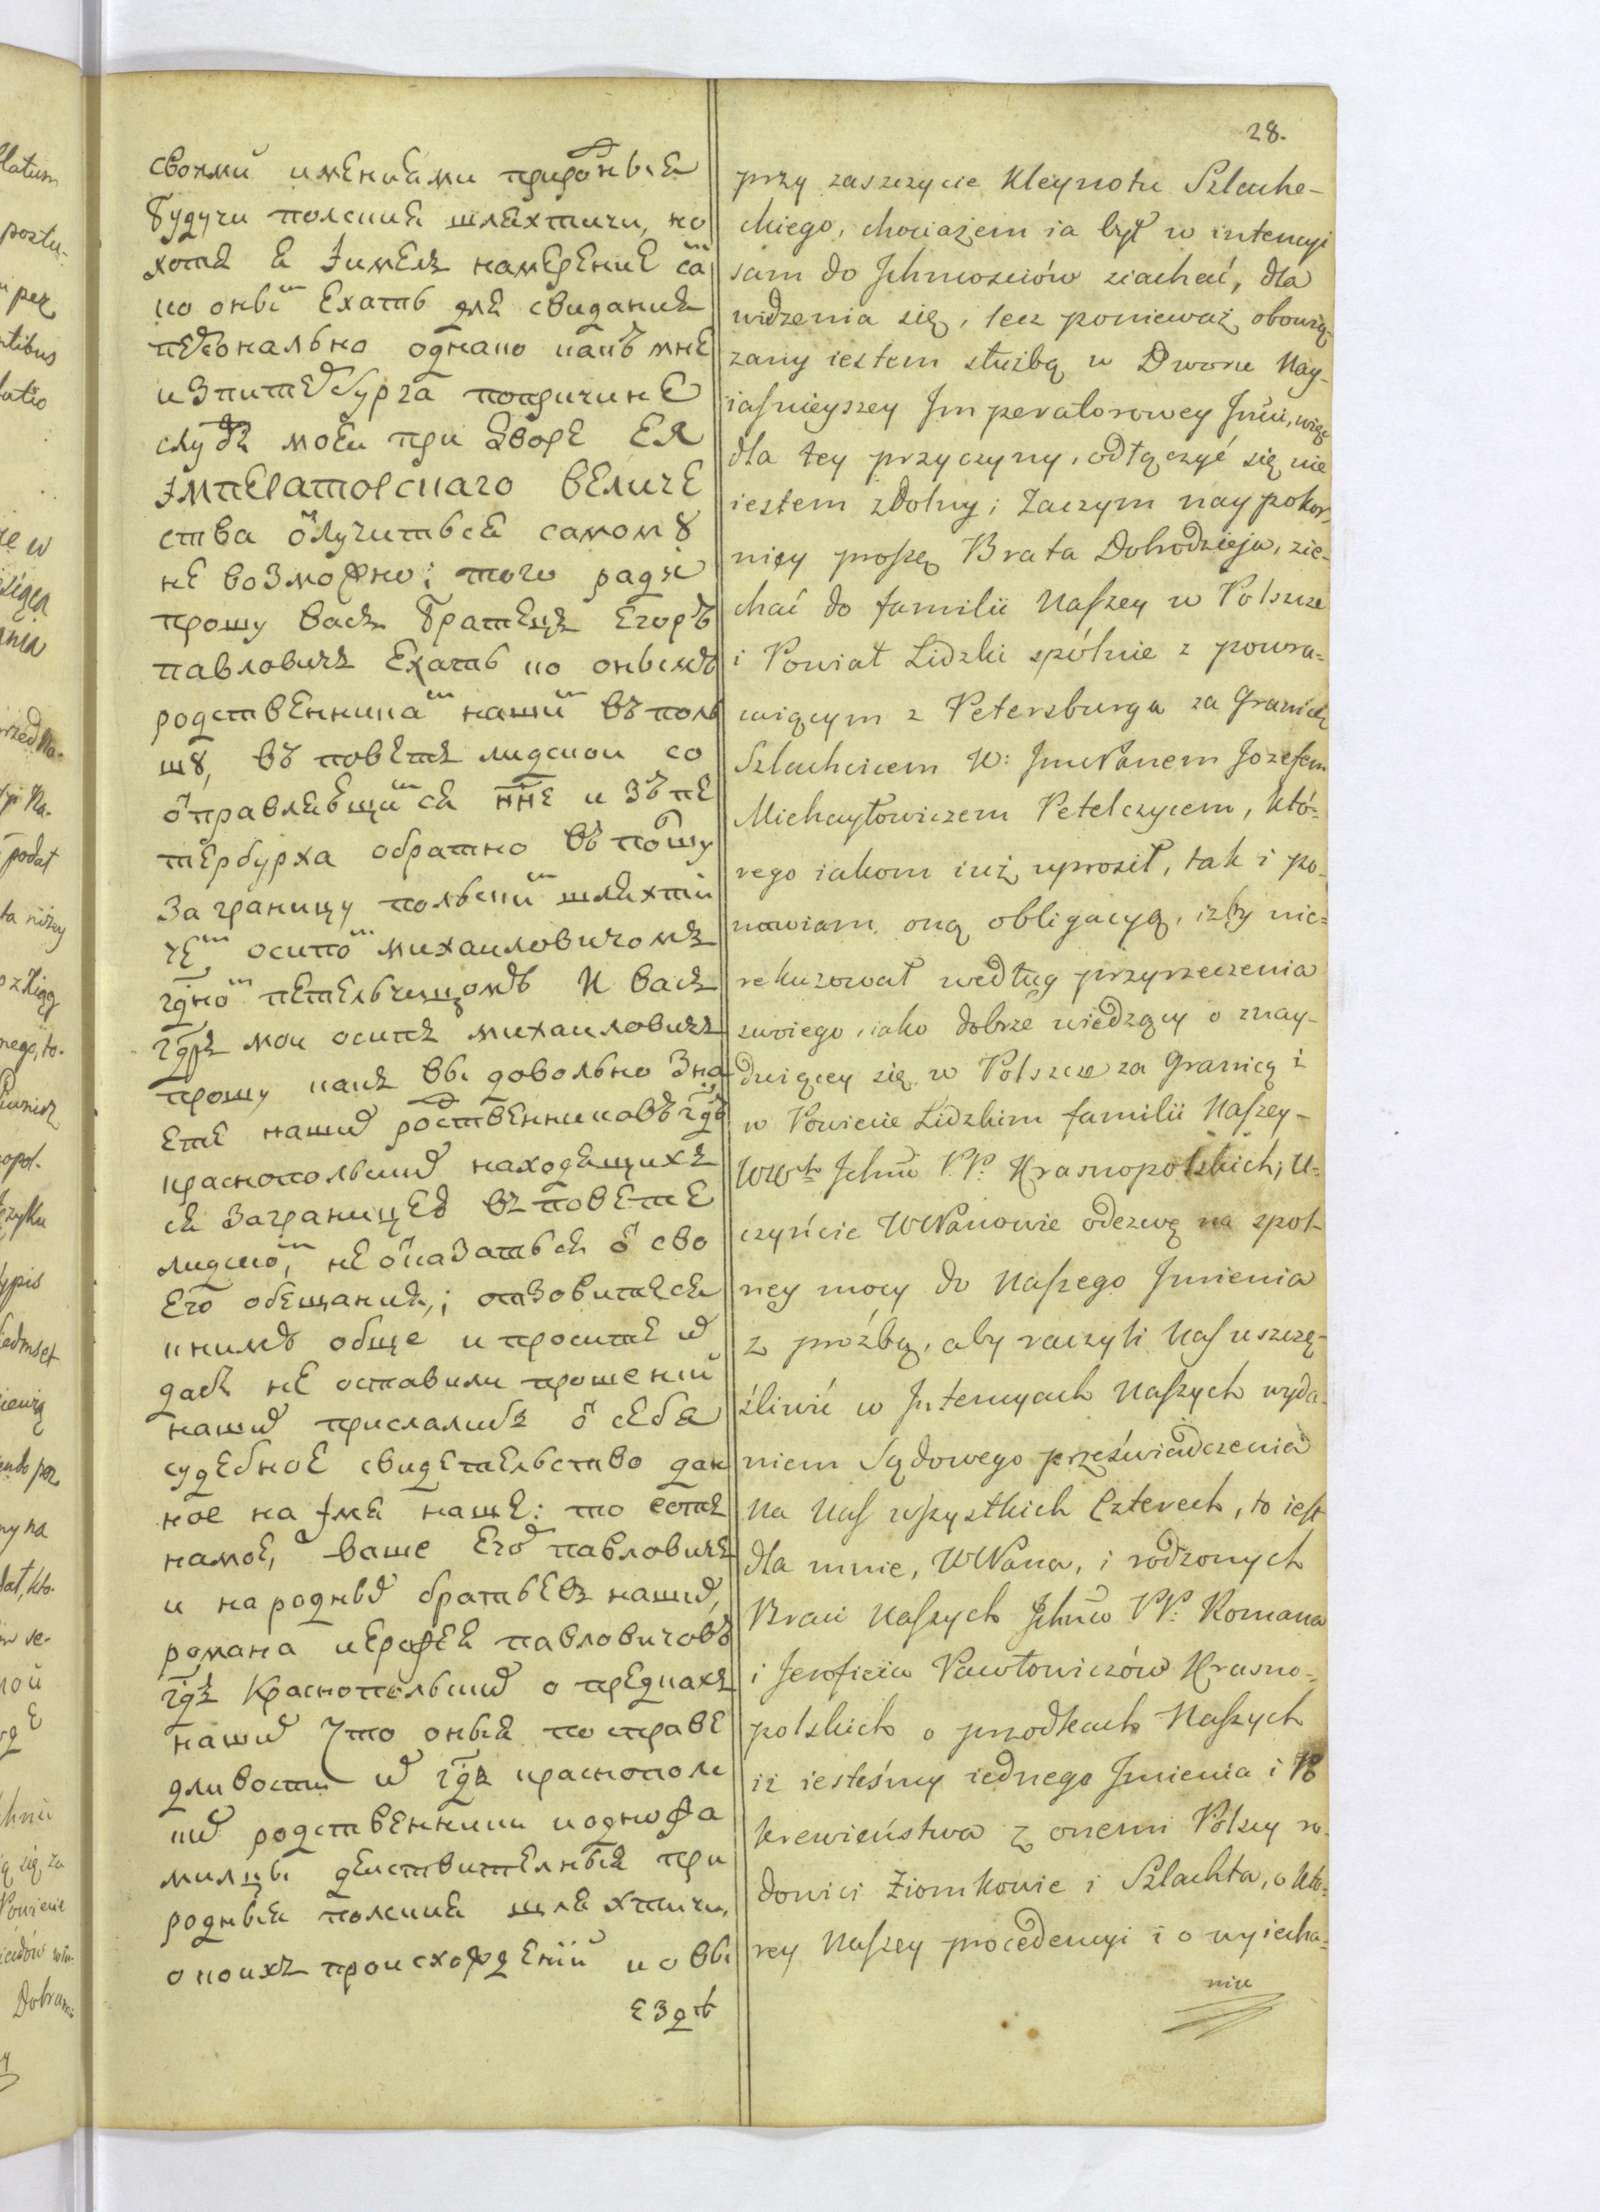 28.
своими имениями природныя
будучи полские шляхтичи, но
хотя я имелъ намерение са
ко оным ехать для свидания
персонально однако какъ мне
из питербурга по причине
служб моеи при дворе ея
императорскаго величе
ства отлучиться самому
не возможно; того ради
прошу васъ братецъ егоръ
павловичъ ехать ко онымъ
родственникам нашим въ поль
шу, въ поветъ лидской со
отправлявшимся нне изъ пе
тербурха обратно въ полшу
за границу польским шляхти
чем осипом михаиловичомъ
гдном петельчицомъ И васъ
гдрь мои осипъ михаиловичъ
прошу какъ вы довольно зна
ете наших родственниковъ гдъ
краснопольских находящихъ
ся заграницею въ повете
лидском, не отказаться от сво
его обещания; отзовитеся
к нимъ обще и просите их
дабъ не оставили прошений
наших прислалибъ от себя
судебное свидетельство дан
ное на имя наше: то есть
на мое, ваше Егор павловичъ
и на родных братьевъ наших,
романа иерофея павловичовъ
гдъ Краснопольских о предкахъ
наших что оныя по справе
дливости их гдъ краснополс
ких родственники и однофа
милцы деиствителныя при
родныя полския шляхтичи,
о коихъ происхождений и о вы
езде
przy zaszczycie Kleynotu Szlache-
ckiego, chociażem ia był w intencyi
sam do Jchmościów ziachać, dla
widzenia się, lecz ponieważ obowią-
zany iestem służbą w Dworu Nay-
iaśnieyszey Jmperatorowey Jmći, więc
dla tey przyczyny, odłączyć się nie
iestem zdolny; Zaczym naypokor-
niey proszę Brata Dobrodzieja, zie-
chać do familii Naszey w Polszcze
i Powiat Lidzki spólnie z powra-
caiącym z Petersburga za Granicę
Szlachcicem W: JmPanem Jozefem
Michayłowiczem Petelczycem, któ-
rego iakom iuż uprosił, tak i po-
nawiam oną obligacyą, iżby nie-
rekuzował według przyrzeczenia
swoiego, iako dobrze wiedzący o znay-
duiącey się w Polszcze za Granicą i
w Powiecie Lidzkim familii Naszey-
WWch Jchm PP. Krasnopolskich; U-
czyńcie WPanowie odezwę na spol-
ney mocy do Naszego Jmienia
z proźbą, aby raczyli Nas uszczę-
śliwić w Jntencyach Naszych wyda-
niem Sądowego przeświadczenia
Na Nas wszystkich Czterech, to iest
dla mnie, WPana, i rodzonych
Braci Naszych Jchmw PP. Romana
i Jeroficia Pawłowiczów Krasno-
polskich o przodkach Naszych
iż iesteśmy iednego Jmienia i Po
krewieństwa z onemi Polscy ro-
dowici Ziomkowie i Szlachta, o któ-
rey Naszey procedencyi i o wyiecha-
niu